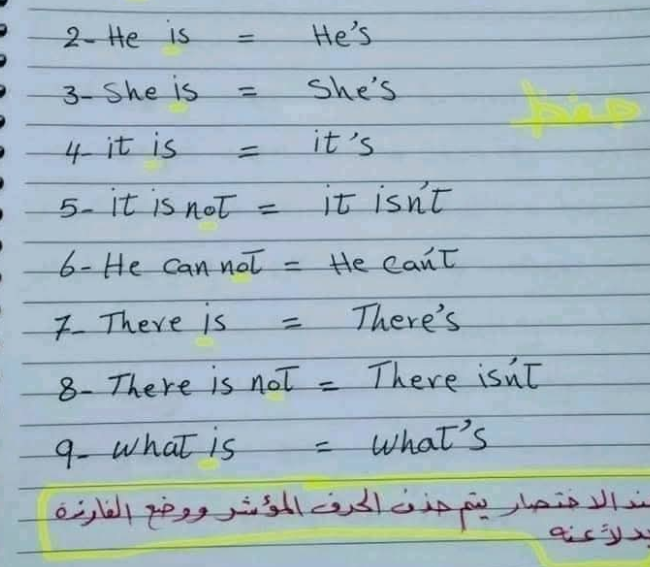 2- He is = He's
3- She is = She's
حفظ
4- it is = it's
5- it is not = it isn't
6- He can not = He can't
7- There is = There's
8- There is not = There isn't
9- what is = what's
ند الاختصار يتم حذف الحرف المؤشر ووضع الفارزة
بدلاً عنه